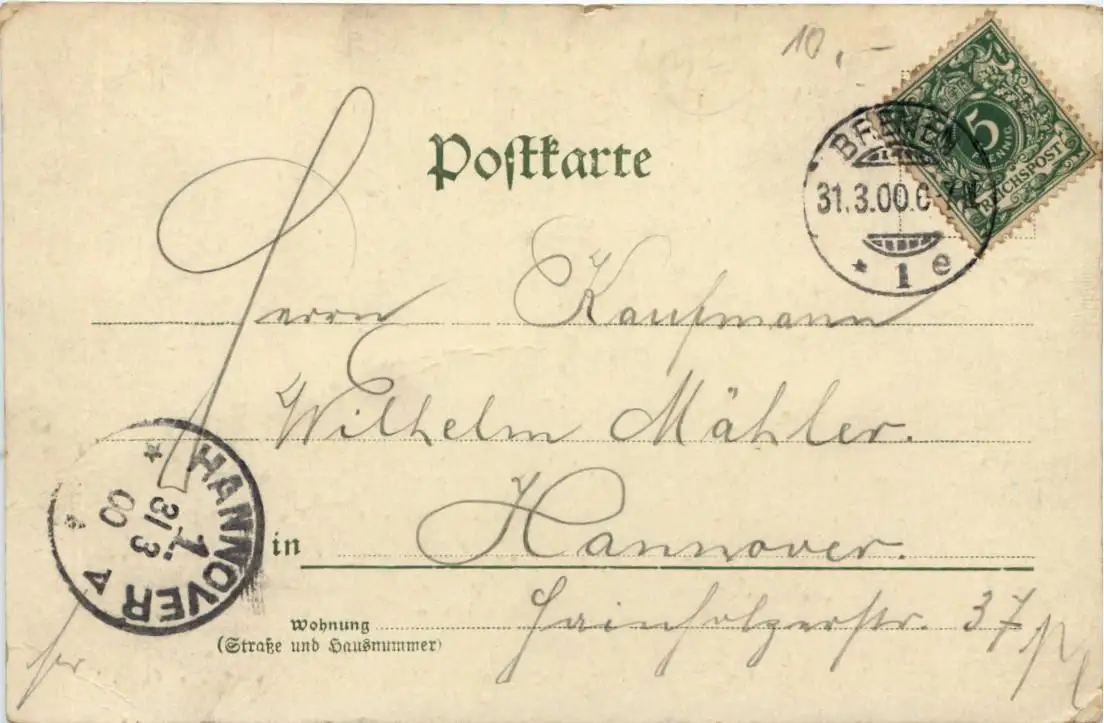 10,-
Postkarte
5
PFENNIG
REICHSPOST
BREMEN
31.3.00.6-7N
* 1 e
Herrn Kaufmann
Wilhelm Mähler.
in Hannover.
Wohnung
(Straße und Hausnummer)
Hainhölzerstr. 37
HANNOVER
1.
31 3
00